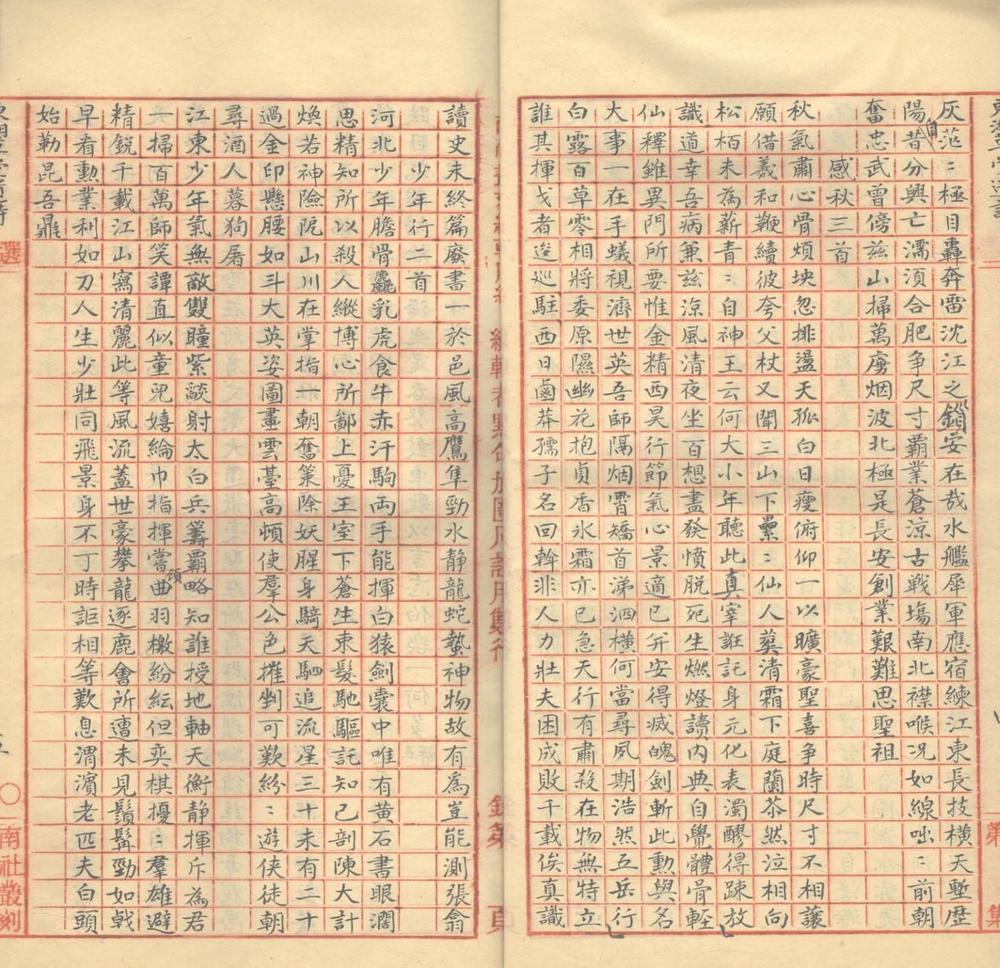 灰茫〻極目轟奔雷沈江之鎖安在哉水艦犀軍應宿練江東長技橫天塹歷
陽昔自分興亡濡須合肥爭尺寸霸業蒼涼古戰塲南北襟喉况如線咄〻前朝
奮忠武曾傍兹山掃萬虜烟波北極是長安創業艱難思聖祖
感秋三首
秋氣肅心骨煩坱忽排盪天孤白日瘦俯仰一以曠豪聖喜爭時尺寸不相讓
願借羲和鞭續彼夸父杖又聞三山下纍〻仙人塟清霜下庭蘭苶然泣相向
松栢未為薪青〻自神王云何大小年聽此真宰誑託身元化表濁醪得踈放
識道幸吾病兼兹涼風清夜坐百想盡發憤脱死生燃燈讀内典自覺體骨輕
仙釋雖異門所要惟金精西昊行節氣心景適已并安得滅魄劍斬此勳與名
大事一在手蟻視濟世英吾師隔烟霄矯首涕泗横何當尋夙期浩然五岳行
白露百草零相將委原隰幽花抱貞香氷霜亦已急天行有肅殺在物無特立
誰其揮戈者逡巡駐西日鹵莽孺子名回斡非人力壯夫困成敗千載俟真識
讀史未終篇廢書一於邑風高鷹隼勁水静龍蛇蟄神物故有為豈能測張翕
少年行二首
河北少年膽骨麤乳虎食牛赤汗駒両手能揮白猿劍囊中唯有黄石書眼濶
思精知所以殺人縱博心所鄙上憂王室下蒼生束髮馳驅託知已剖陳大計
煥若神險阨山川在掌指一朝奮策除妖腥身騎天駟追流星三十未有二十
過金印懸腰如斗大英姿圖畫雲臺高頓使羣公色摧剉可歎紛〻遊俠徒朝
尋酒人暮狗屠
江東少年氣無敵雙瞳紫燄射太白兵籌霸略知誰授地軸天衡静揮斥為君
一掃百萬師笑譚直似童兒嬉綸巾指揮嘗顧曲羽檄紛紜但奕棋擾〻羣雄避
精鋭千載江山寫清麗此等風流蓋世豪攀龍逐鹿會所遭未見鬚髯勁如戟
早看勳業利如刀人生少壯同飛景身不丁時詎相等歎息渭濱老匹夫白頭
始勒昆吾鼎
選
南社叢刻